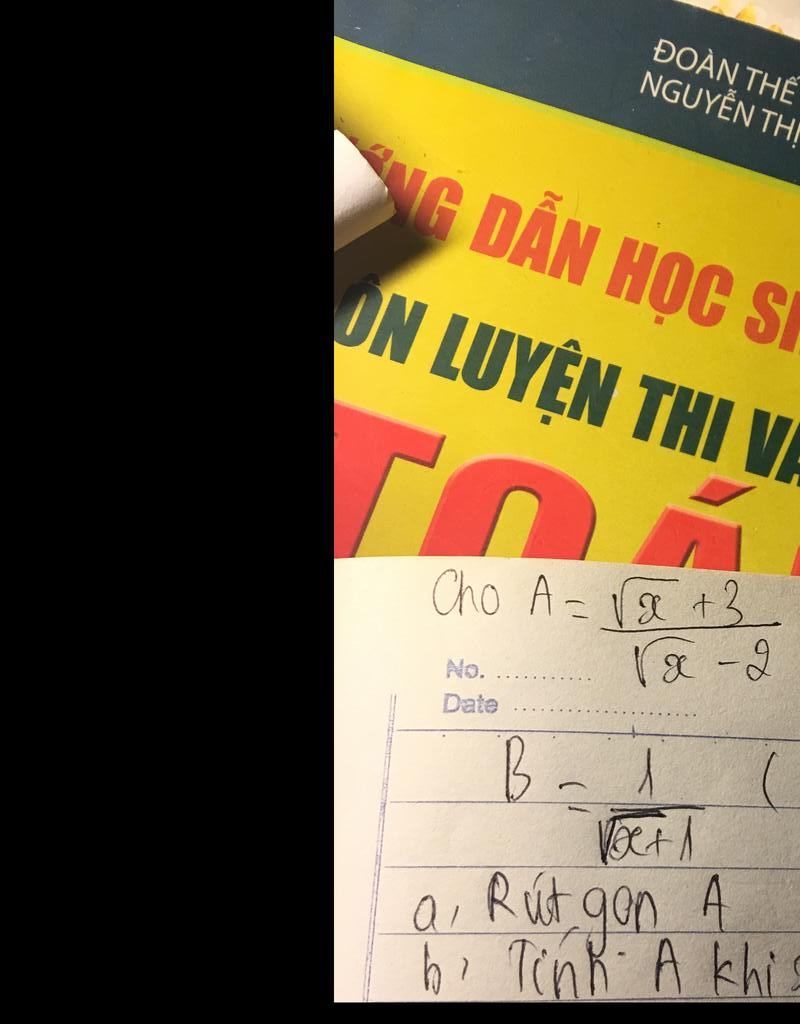 ĐOÀN THẾ
NGUYỄN THỊ
DẪN HỌC
ÔN LUYỆN THI
TOÁ
Cho A = √x + 3 / √x - 2
No. ............
Date ......................
B = 1 / √x + 1 (
a, Rút gọn A
b, Tính A khi